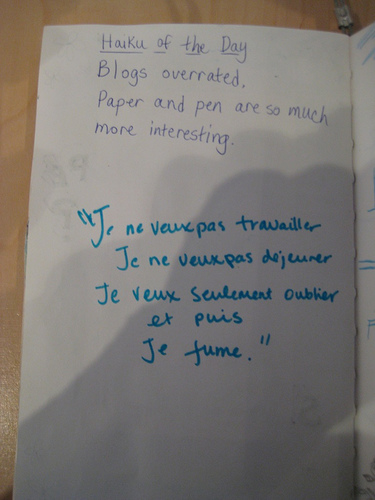 Haiku of the Day
Blogs overrated.
Paper and pen are so much
more interesting.
"Je ne veux pas travailler
Je ne veux pas déjeuner
Je veux seulement oublier
et puis
Je fume."